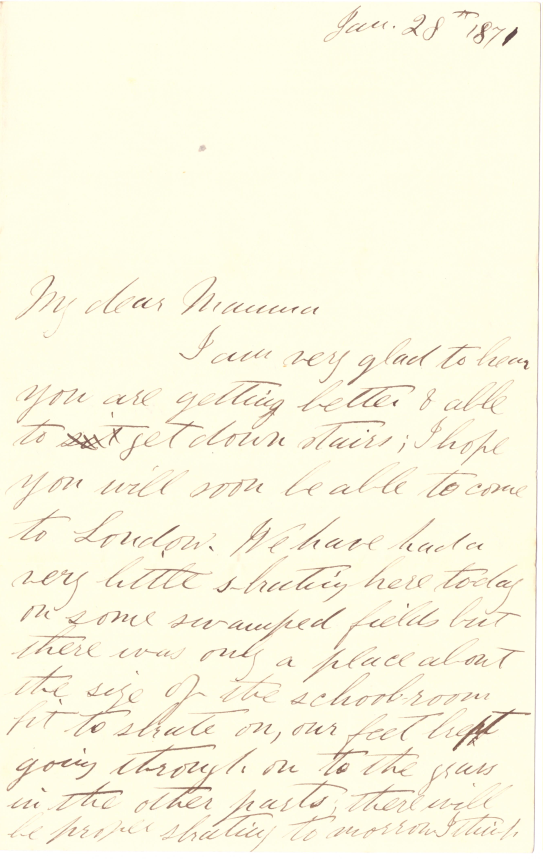 Jan. 28th 1871
My dear Mamma
I am very glad to hear
you are getting better & able
to get down stairs; I hope
you will soon be able to come
to London. We have had a
very little skating here today
on some swamped fields but
there was only a place about
the size of the schoolroom
fit to skate on, our feet kept
going through on to the grass
in the other parts; there will
be proper skating to morrow I think